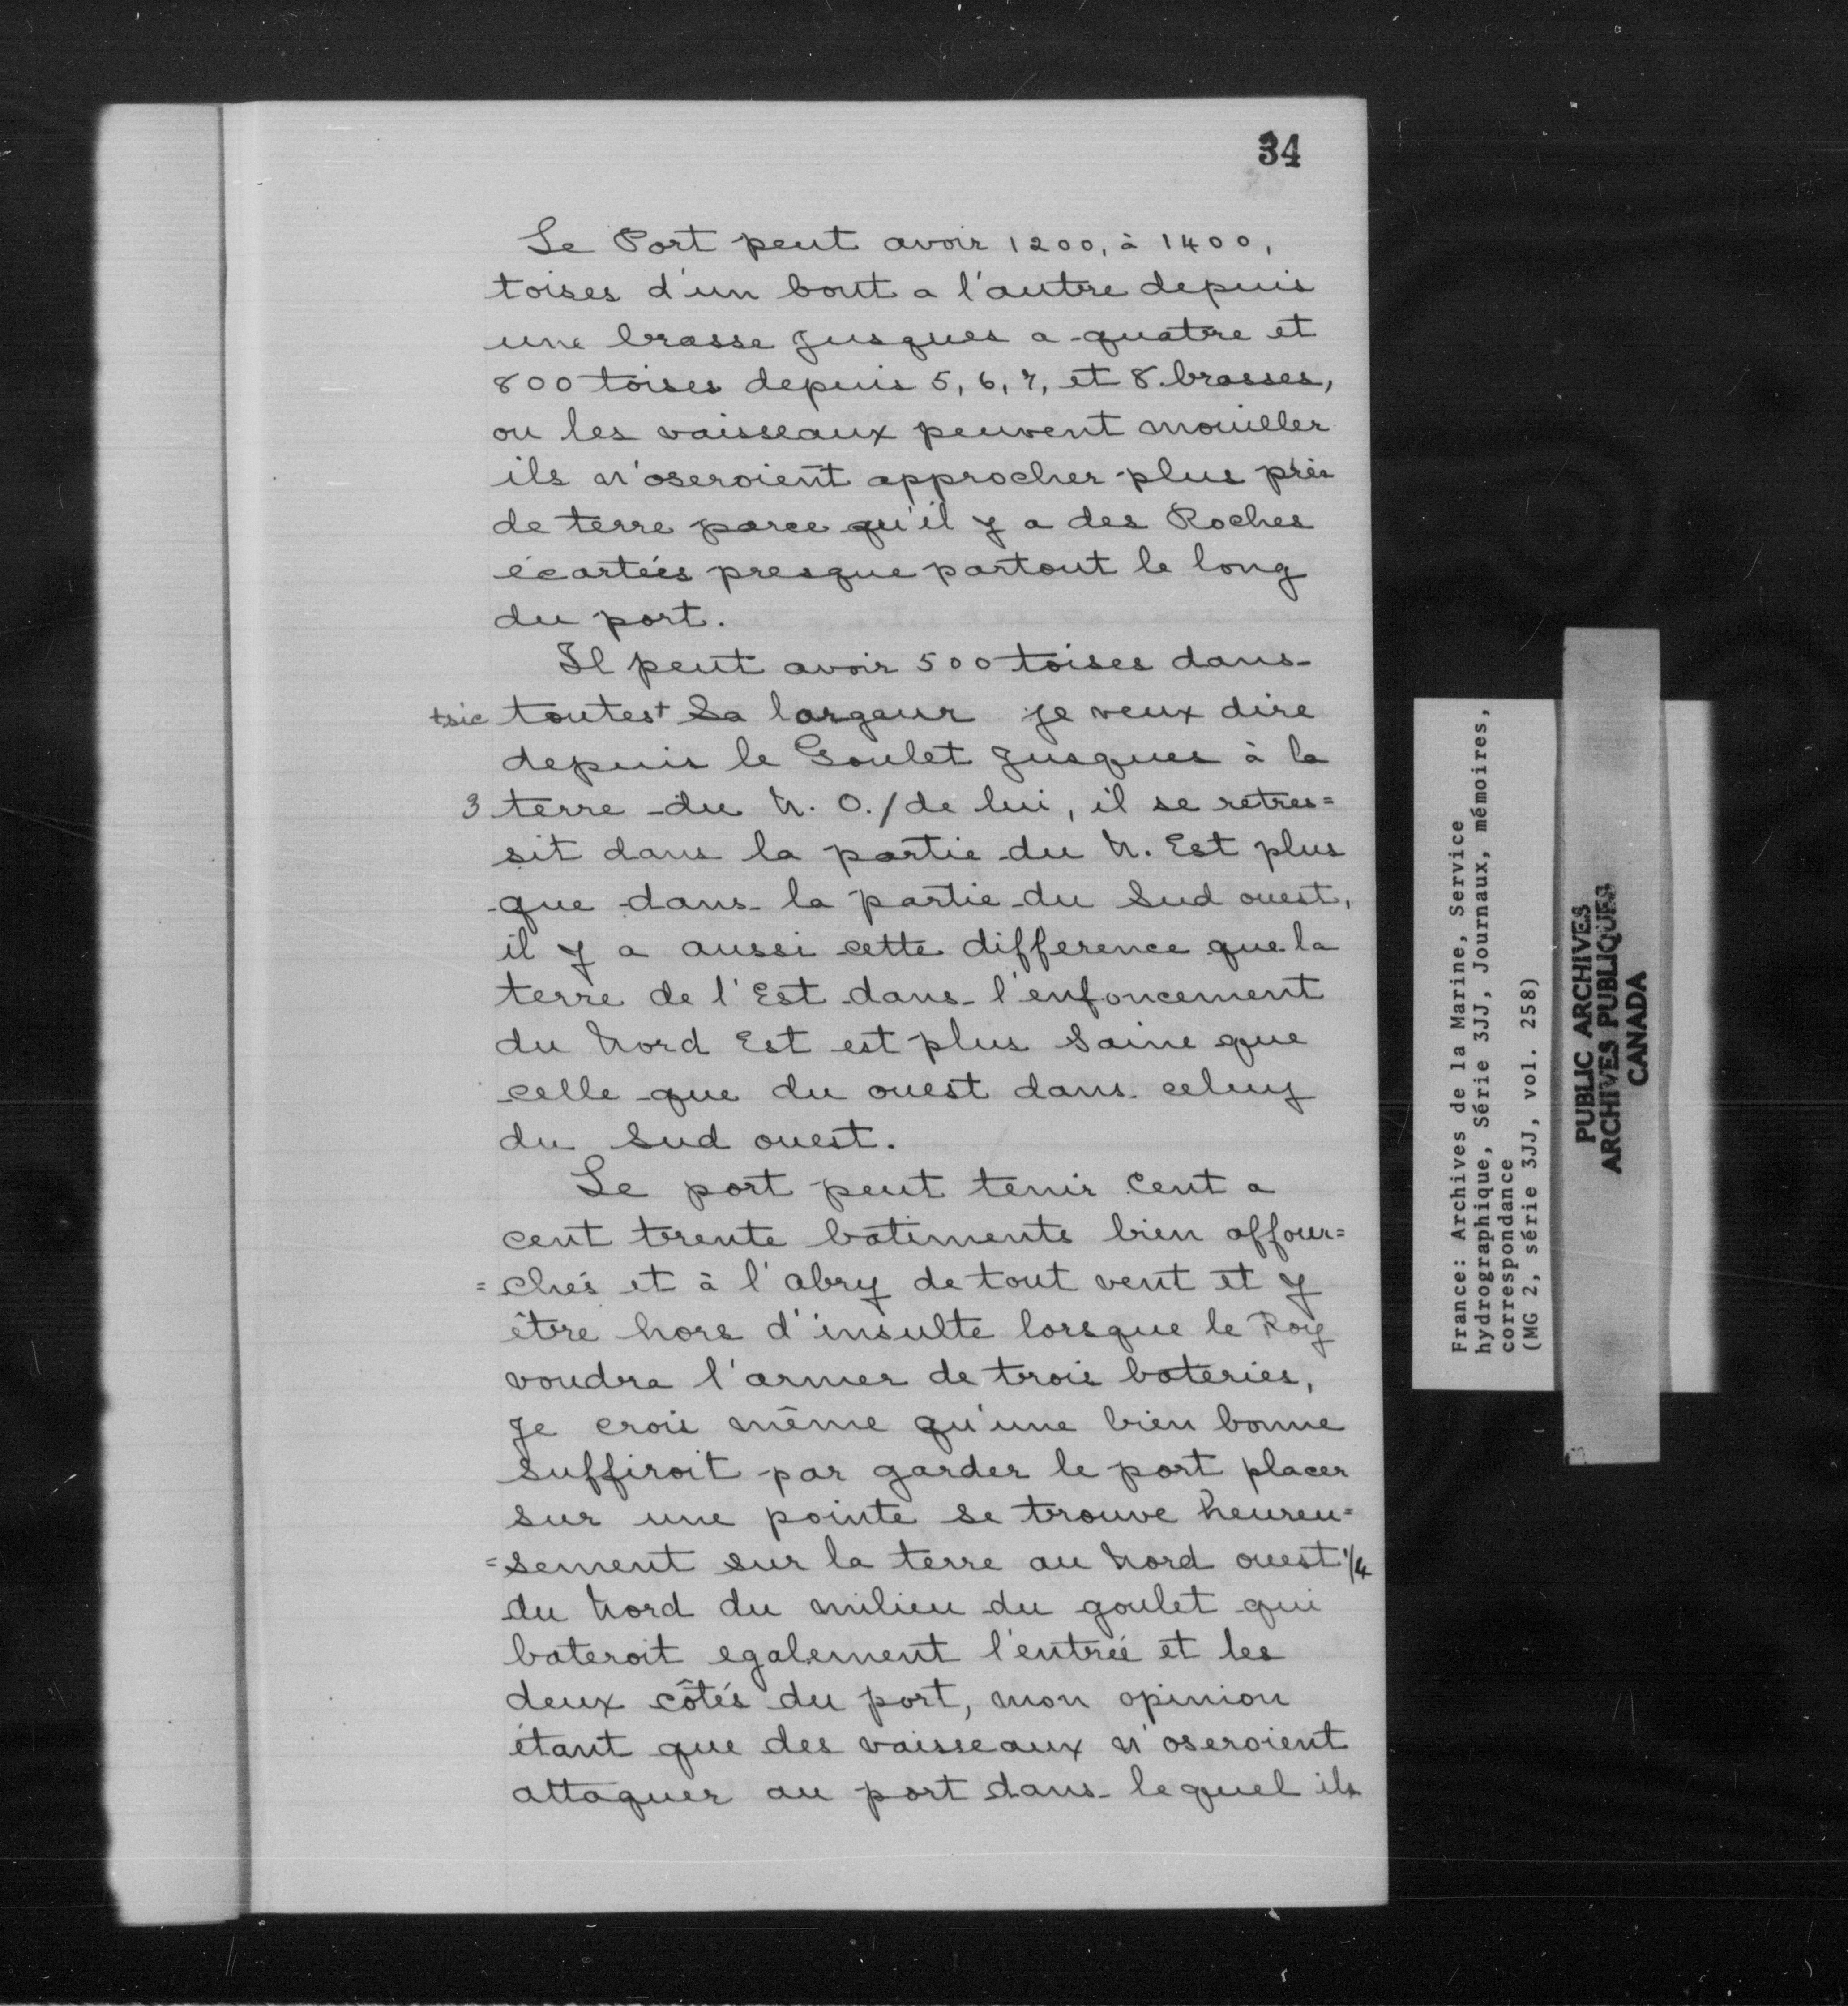 34
Le Port peut avoir 1200, à 1400,
toises d'un bout a l'autre depuis
une brasse jusques a quatre et
800 toises depuis 5, 6, 7, et 8 brasses,
ou les vaisseaux peuvent mouiller
ils n'oseroient approcher plus près
de terre parce qu'il y a des Roches
écartées presque partout le long
du port.
Il peut avoir 500 toises dans
+sic toutes+ Sa largeur je veux dire
depuis le Goulet jusques à la
3 terre du N. O./de lui, il se retres=
sit dans la partie du N. Est plus
que dans la partie du Sud ouest,
il y a aussi cette difference que la
terre de l'Est dans l'enfoncement
du Nord Est est plus Saine que
celle que du ouest dans celuy
du Sud ouest.
Le port peut tenir Cent a
cent trente batiments bien affour=
=chés et à l'abry de tout vent et y
être hors d'insulte lorsque le Roy
voudra l'armer de trois bateries,
Je crois même qu'une bien bonne
Suffiroit par garder le port placer
sur une pointe se trouve heureu=
=sement sur la terre au Nord ouest 1/4
du Nord du milieu du goulet qui
bateroit egalement l'entrée et les
deux côtés du port, mon opinion
étant que des vaisseaux n'oseroient
attaquer au port dans lequel ils
France: Archives de la Marine, Service
hydrographique, Série 3JJ, Journaux, mémoires,
correspondance
(MG 2, série 3JJ, vol. 258)
PUBLIC ARCHIVES
ARCHIVES PUBLIQUES
CANADA